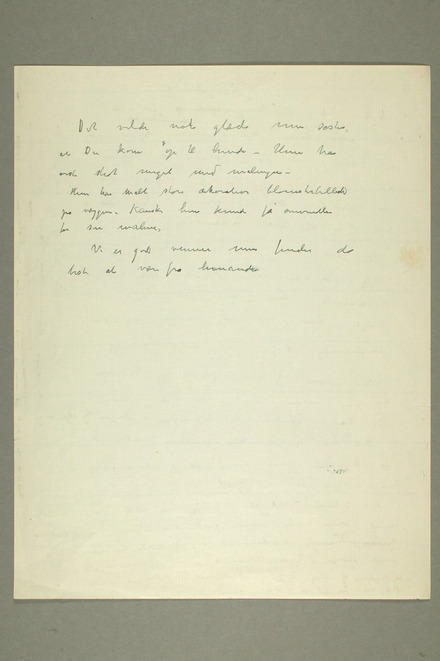 Det vilde nok glæde min søster,
at Du kom op til hende – Hun har
også strøt meget med malingen –
Hun har malt store dekorative blomsterbilleder
på væggen. Kanskje hun kunde få anvendelse
for sin maling,
Vi er gode venner men finder det
best at være fra hinanden